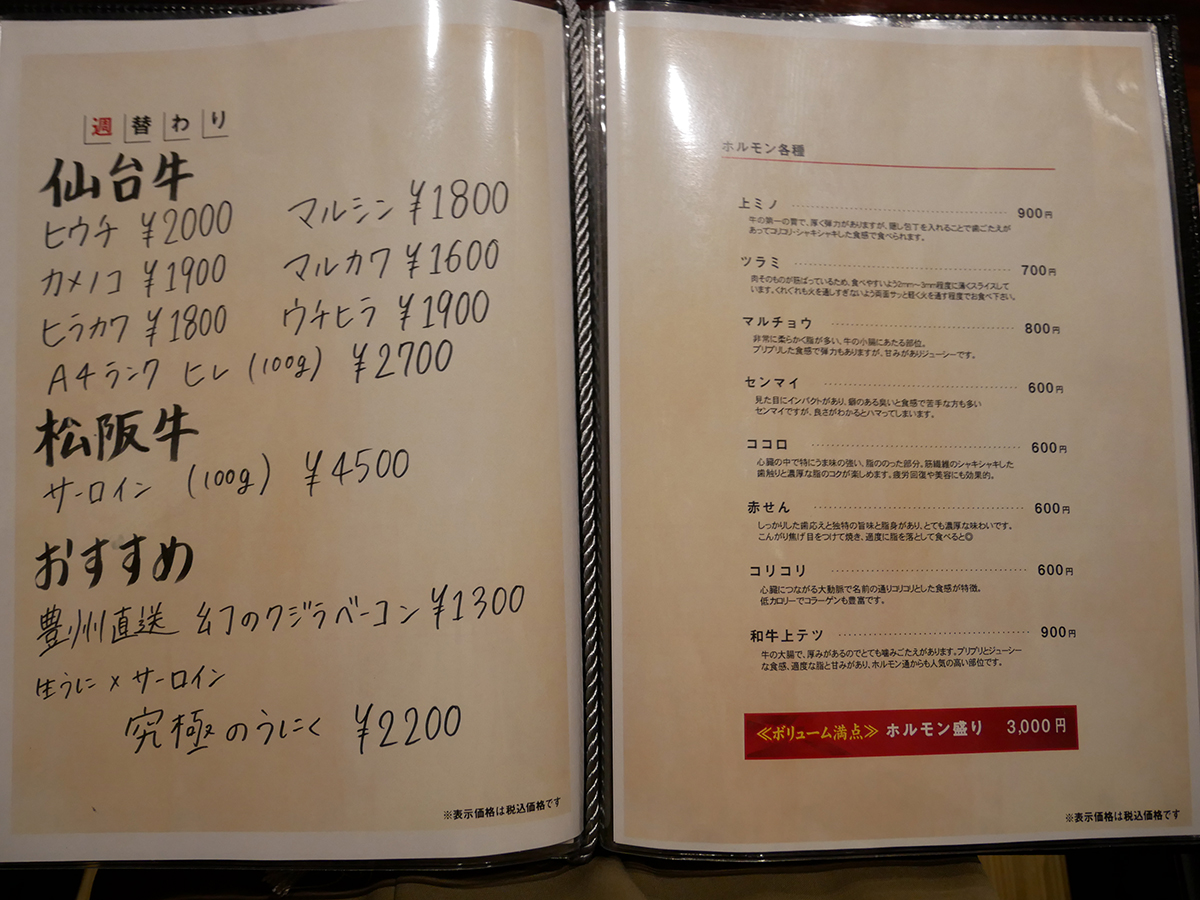 週替わり
仙台牛
ヒウチ ¥2000 マルシン ¥1800
カメノコ ¥1900 マルカワ ¥1600
ヒラカワ ¥1800 ウチヒラ ¥1900
A4ランク ヒレ (100g) ¥2700
松阪牛
サーロイン (100g) ¥4500
おすすめ
豊州直送 幻のクジラベーコン ¥1300
生うに×サーロイン
究極のうにく ¥2200
※表示価格は税込価格です
ホルモン各種
上ミノ 900円
牛の第一の胃で、厚く弾力がありますが、隠し包丁を入れることで歯ごたえが
あってコリコリ・シャキシャキした食感で食べられます。
ツラミ 700円
肉そのものが筋ばっているため、食べやすいよう2mm〜3mm程度に薄くスライスして
います。くれぐれも火を通しすぎないよう両面サッと軽く火を通す程度でお食べ下さい。
マルチョウ 800円
非常に柔らかく脂が多い、牛の小腸にあたる部位。
プリプリした食感で弾力もありますが、甘みがありジューシーです。
センマイ 600円
見た目にインパクトがあり、癖のある臭いと食感で苦手な方も多い
センマイですが、良さがわかるとハマってしまいます。
ココロ 600円
心臓の中で特にうま味の強い、脂ののった部分。筋繊維のシャキシャキした
歯触りと濃厚な脂のコクが楽しめます。疲労回復や美容にも効果的。
赤せん 600円
しっかりした歯応えと独特の旨味と脂身があり、とても濃厚な味わいです。
こんがり焦げ目をつけて焼き、適度に脂を落として食べると◎
コリコリ 600円
心臓につながる大動脈で名前の通りコリコリとした食感が特徴。
低カロリーでコラーゲンも豊富です。
和牛上テツ 900円
牛の大腸で、厚みがあるのでとても噛みごたえがあります。プリプリとジューシー
な食感、適度な脂と甘みがあり、ホルモン通からも人気の高い部位です。
≪ボリューム満点≫ ホルモン盛り 3,000円
※表示価格は税込価格です